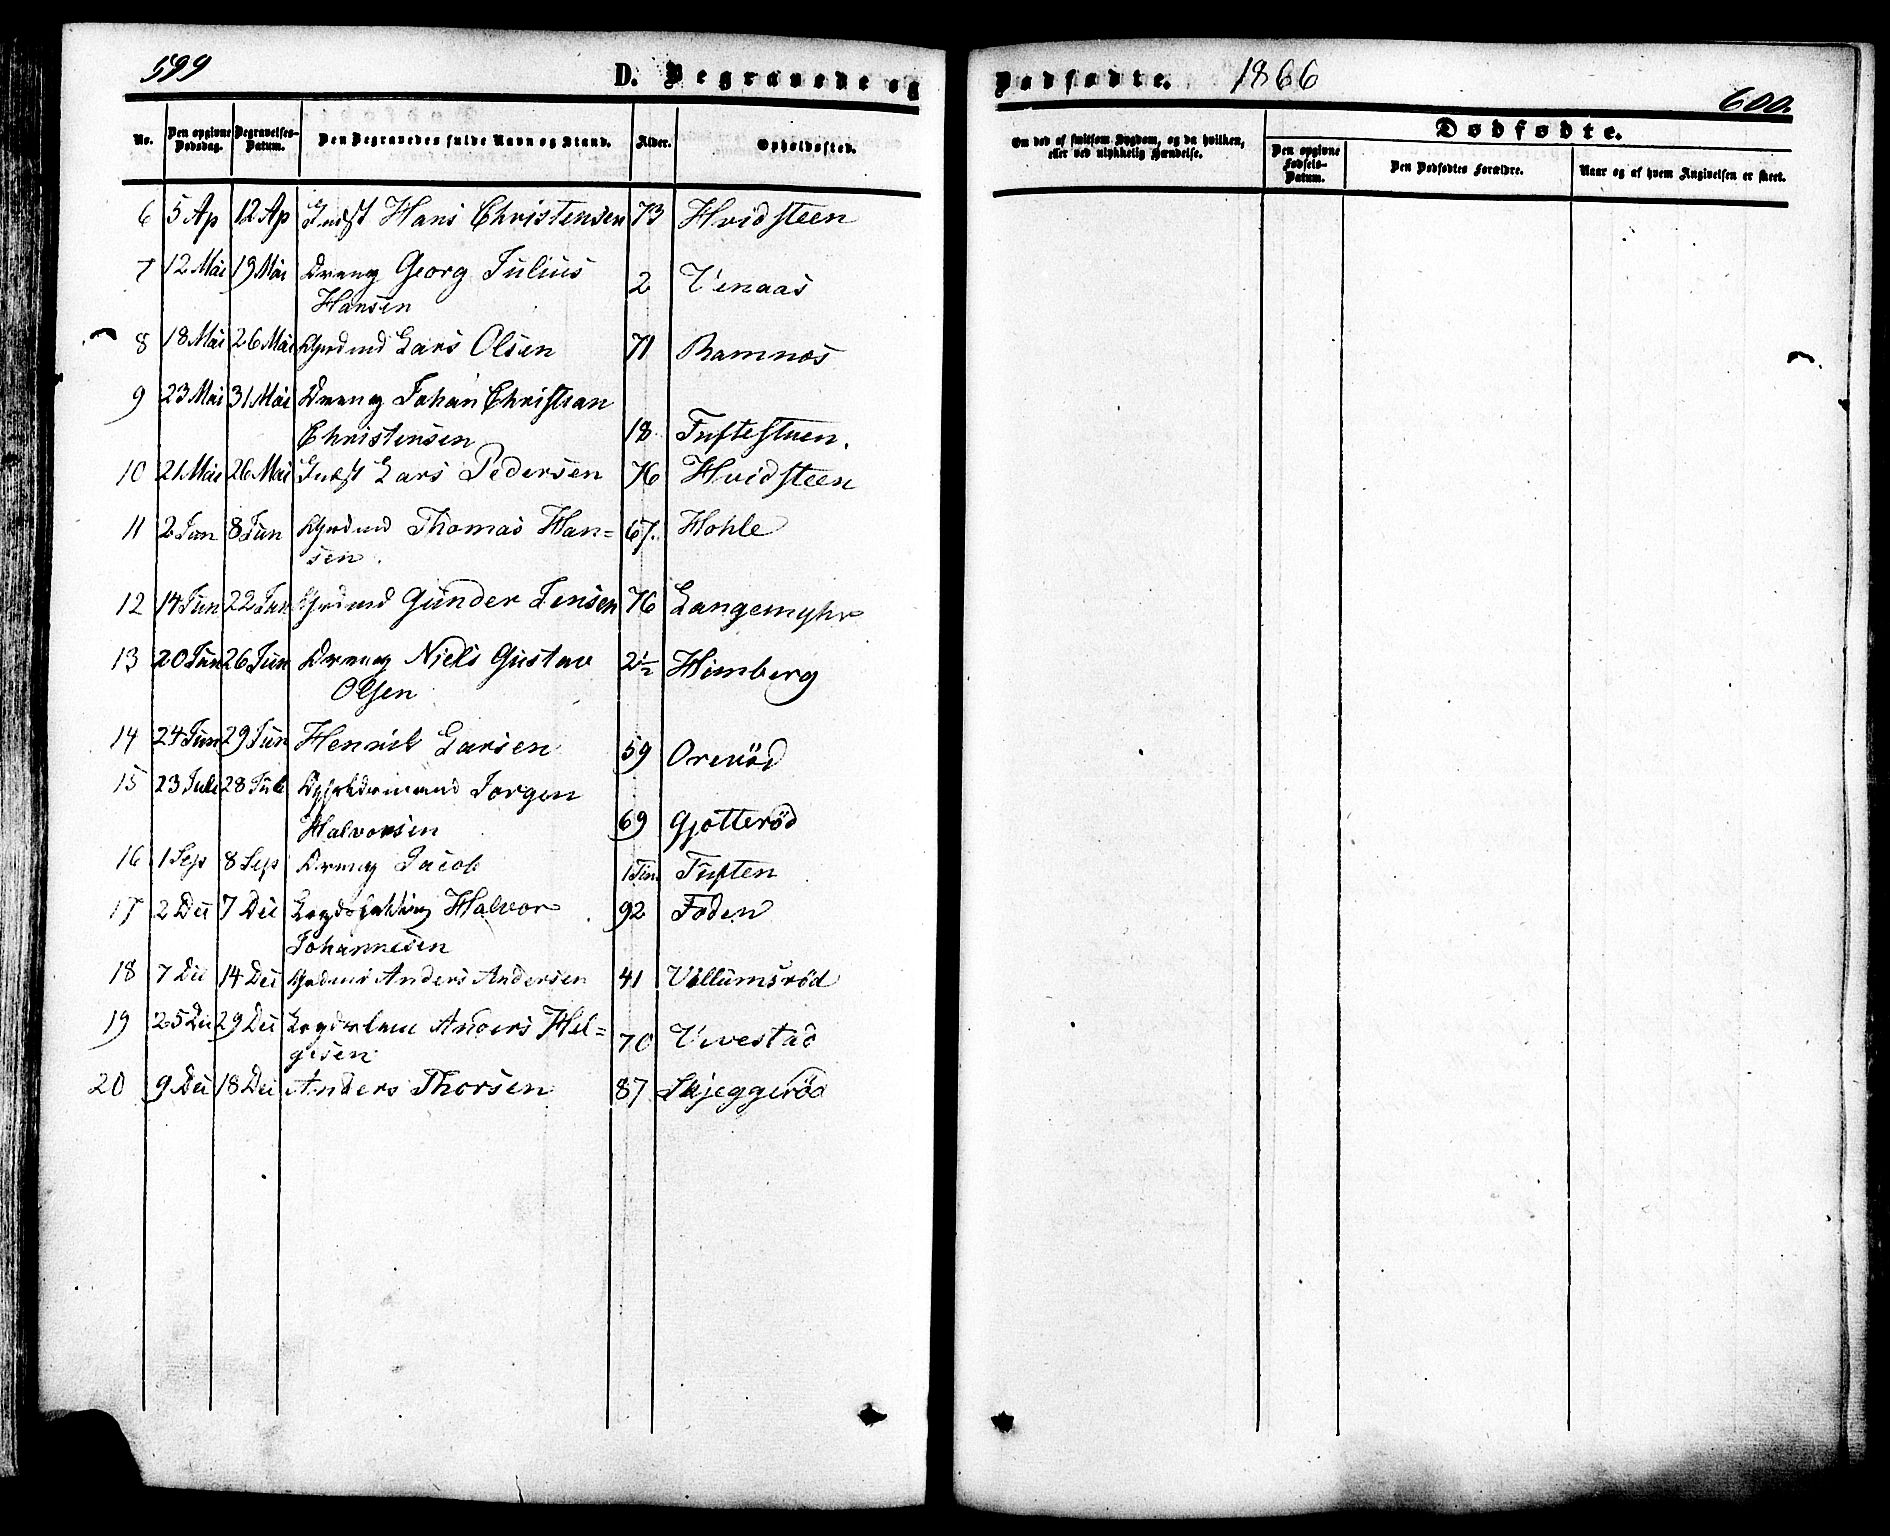 599
D. Begravede og
Dødfødte. 1866
600.
No.
Den opgivne Dødsdag.
Begravelses-Datum.
Den Begravedes fulde Navn og Stand.
Alder.
Opholdssted.
Om død af smitsom Sygdom, og da hvilken,
eller ved ulykkelig Hændelse.
Dødfødte.
Den opgivne Fødsels-Datum.
Den Dødfødtes Forældre.
Naar og af hvem Angivelsen er skeet.
6 5 Ap 12 Ap Indst Hans Christensen 73 Hvidsteen
7 12 Mai 19 Mai Dreng Georg Julius
Hansen 2 Vinaas
8 18 Mai 26 Mai Grdmd Lars Olsen 71 Ramnæs
9 23 Mai 31 Mai Dreng Johan Christian
Christensen 18 Tuftestuen.
10 21 Mai 26 Mai Indst Lars Pedersen 76 Hvidsteen
11 2 Jun 8 Jun Grdmd Thomas Han=
sen. 67. Hohle
12 14 Jun 22 Jun Grdmd Gunder Jensen 76 Langemyhr
13 20 Jun 26 Jun Dreng Niels Gustav
Olsen 2½ Himberg
14 24 Jun 29 Jun Henrik Larsen 59 Orerød
15 23 Juli 28 Juli Jørgen
Halvorsen 69 Gjøtterød
16 1 Sep 8 Sep Dreng Jacob 1 Tim. Tuften
17 2 Dec 7 Dec Halvor
Johannesen 92 Foden
18 7 Dec 14 Dec Anders Andersen 41 Villumsrød
19 25 Dec 29 Dec Anders Hel=
gesen 70 Vivestad
20 9 Dec 18 Dec Anders Thorsen 87 Skjeggerød